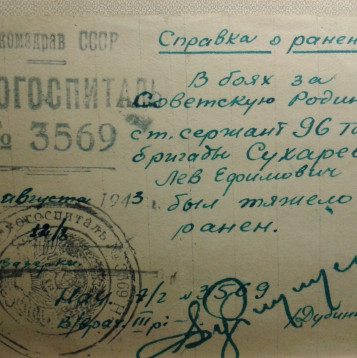 комздрав СССР
ОГОСПИТАЛЬ
№ 3569
августа 1943
12/8
Справка о ранен
В боях за
Советскую Родин
ст. сержант 96 Та
бригады Сухарев
Лев Ефимович
был тяжело
ранен.
Нач. э/г № 3569
В/врач III р.